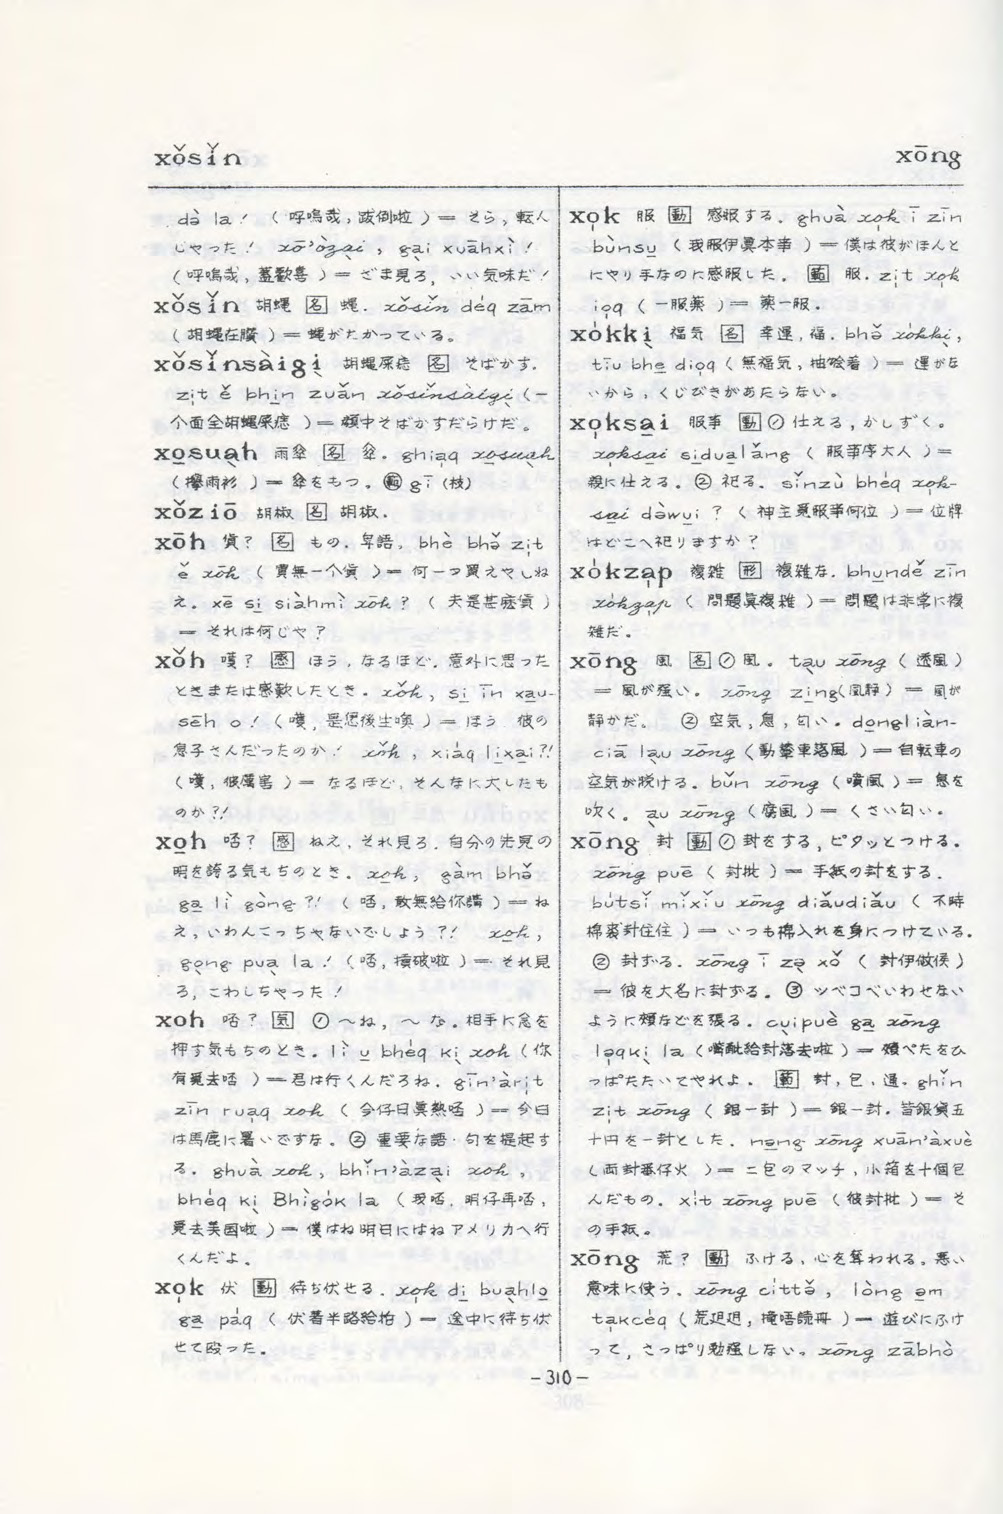 xǒsǐn
xōng
də̀ la！（呼嗚哉，跋倒啦）＝ そら，転ん
じゃった！ xō'òzai，gai xuāhxì！
（呼嗚哉，蓋歡喜）＝ ざま見ろ，いい気味だ！
xǒsǐn 胡蝿 [名] 蝿．xǒsǐn déq zām
（胡蝿在臢）＝ 蝿がたかっている。
xǒsǐnsàigi 胡蝿屎痣 [名] そばかす．
zit ě bhin zuǎn xǒsǐnsàigi（一
介面全胡蝿屎痣）＝ 顔中そばかすだらけだ。
xosuah 雨傘 [名] 傘．ghiaq xosuah
（攑雨衫）＝ 傘をもつ。 gī（枝）
xǒziō 胡椒 [名] 胡椒．
xōh 貨？ [名] もの．卑語。bhè bhə̌ zit
ě xōh（買無一个貨）＝ 何一つ買えやしね
え．xē si siàhmì xōh？（夫是甚麽貨）
＝ それは何じゃ？
xǒh 嘆？ [感] ほう，なるほど．意外に思った
ときまたは感歎したとき．xǒh，si īn xau-
sēh o！（嘆，是怹後生唤）＝ ほう 彼の
息子さんだったのか！ xǒh，xiáq lixai?!
（嘆，彼厲害）＝ なるほど，そんなに大したも
のか?!
xoh 唔？ [感] ねえ，それ見ろ．自分の先見の
明を誇る気もちのとき．xoh，gàm bhə̌
ga lì gòng?!（唔，敢無給你講）＝ ね
え，いわんこっちゃないでしょう?! xoh，
gong pua la！（唔，摃破啦）＝ それ見
ろ，こわしちゃった！
xoh 唔？ [気] ① 〜ね，〜な．相手に念を
押す気もちのとき．lì u bhéq ki xoh（你
有覓去唔）＝ 君は行くんだろね．gīn'àrit
zīn ruaq xoh（今仔日眞熱唔）＝ 今日
は馬鹿に暑いですな．② 重要な語・句を提起す
る．ghuà xoh，bhǐn'àzai xoh，
bhéq ki Bhìgók la（我唔，明仔再唔，
覓去美国啦）＝ 僕はね明日にはねアメリカへ行
くんだよ．
xok 伏 [動] 待ち伏せる．xok di buahlo
ga páq（伏著半路給拍）＝ 途中に待ち伏
せて殴った。
xok 服 [動] 感服する．ghuà xok ī zīn
bùnsu（我服伊眞本事）＝ 僕は彼がほんと
にやり手なのに感服した． 服．zit xok
ioq（一服薬）＝ 薬一服．
xókki 福気 [名] 幸運，福．bhə̌ xókki，
tīu bhe dioq（無福気，抽𣍐着）＝ 運がな
いから，くじびきがあたらない。
xoksai 服事 [動] ① 仕える，かしずく。
xoksai sidualǎng（服事序大人）＝
親に仕える。② 祀る．sǐnzù bhéq xok-
sai dəwui？（神主覓服事何位）＝ 位牌
はどこへ祀りますか？
xókzap 複雑 [形] 複雑な．bhundě zīn
xókzap（問題眞複雑）＝ 問題は非常に複
雑だ．
xōng 風 [名] ① 風．tau xōng（透風）
＝ 風が强い．xōng zing（風靜）＝ 風が
靜かだ． ② 空気，息，匂い．dongliàn-
ciā lau xōng（動輦車落風）＝ 自転車の
空気が脱ける．bǔn xōng（噴風）＝ 息を
吹く．au xōng（腐風）＝ くさい匂い．
xōng 封 [動] ① 封をする，ピタッとつける．
xōng puē（封批）＝ 手紙の封をする．
bútsǐ mǐxǐu xōng diǎudiǎu（不時
棉裘封住住）＝ いつも棉入れを身につけている．
② 封ずる．xōng ī zə xǒ（封伊做侯）
＝ 彼を大名に封ずる．③ ツベコベいわせない
ように頬などを張る．cuipuè ga xōng
laqki la（嘴䩉給封落去啦）＝ 頬ぺたをひ
っぱたたいてやれよ． 封，包，通．ghǐn
zit xōng（銀一封）＝ 銀一封．皆銀貨五
十円を一封とした．nəng xōng xuān'àxuè
（両封番仔火）＝ 二包のマッチ，小箱を十個包
んだもの．xit xōng puē（彼封批）＝ そ
の手紙。
xōng 荒？ [動] ふける，心を奪われる。悪い
意味に使う．xōng cittə̌，lòng əm
takcéq（荒𨑨迌，攏唔讀冊）＝ 遊びにふけ
って，さっぱり勉强しない。xōng zābhò
－310－